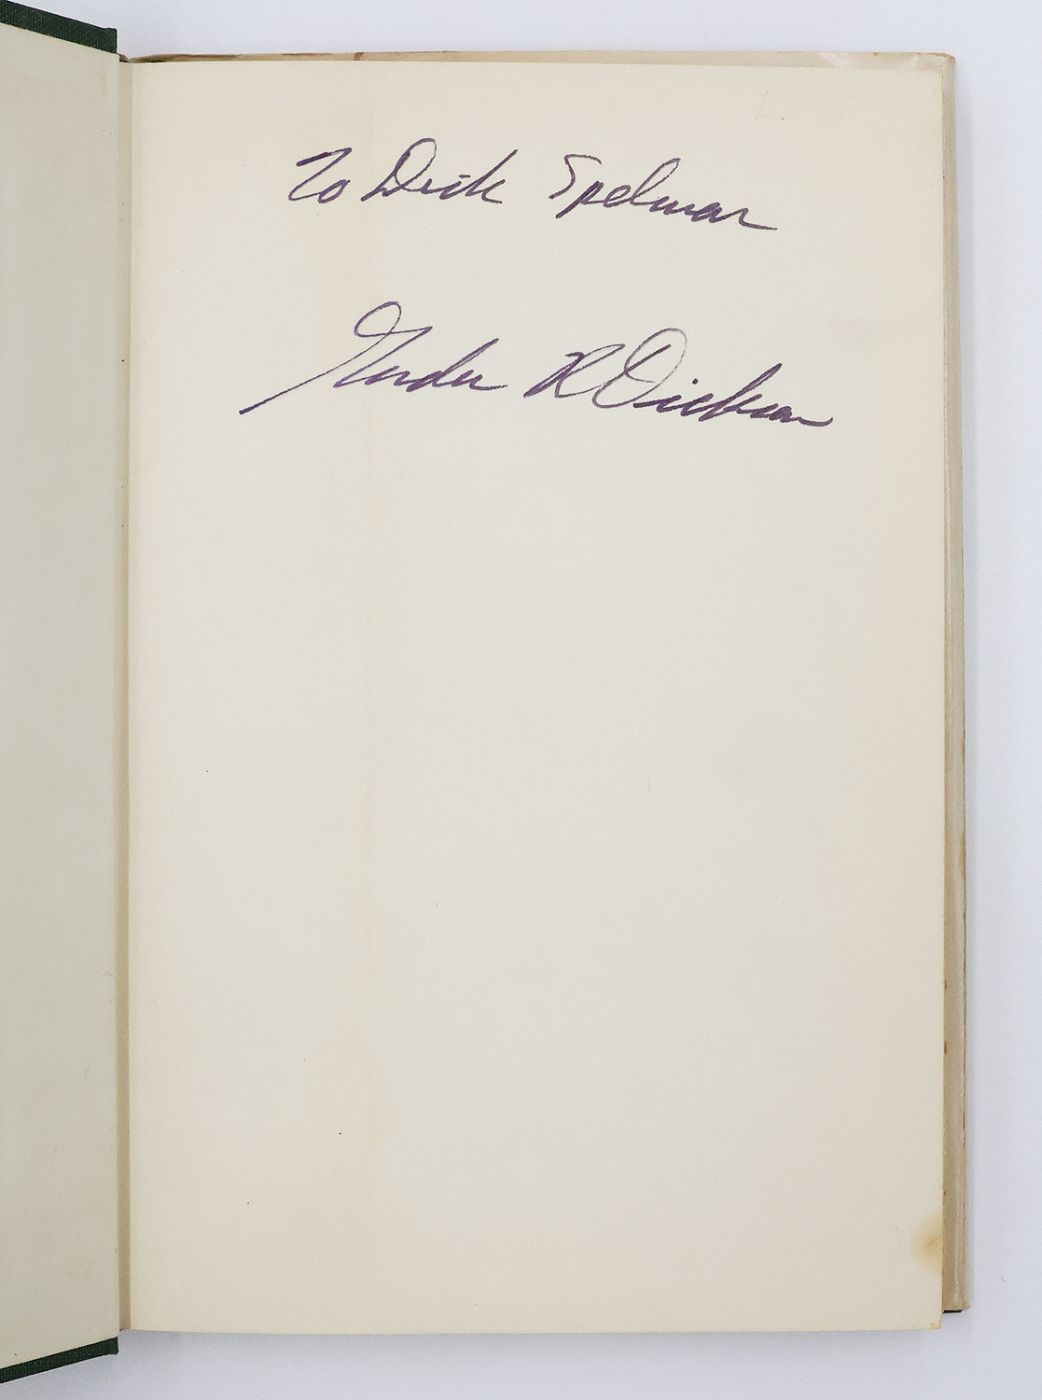 To Dick Spelman
Gordon R Dickson